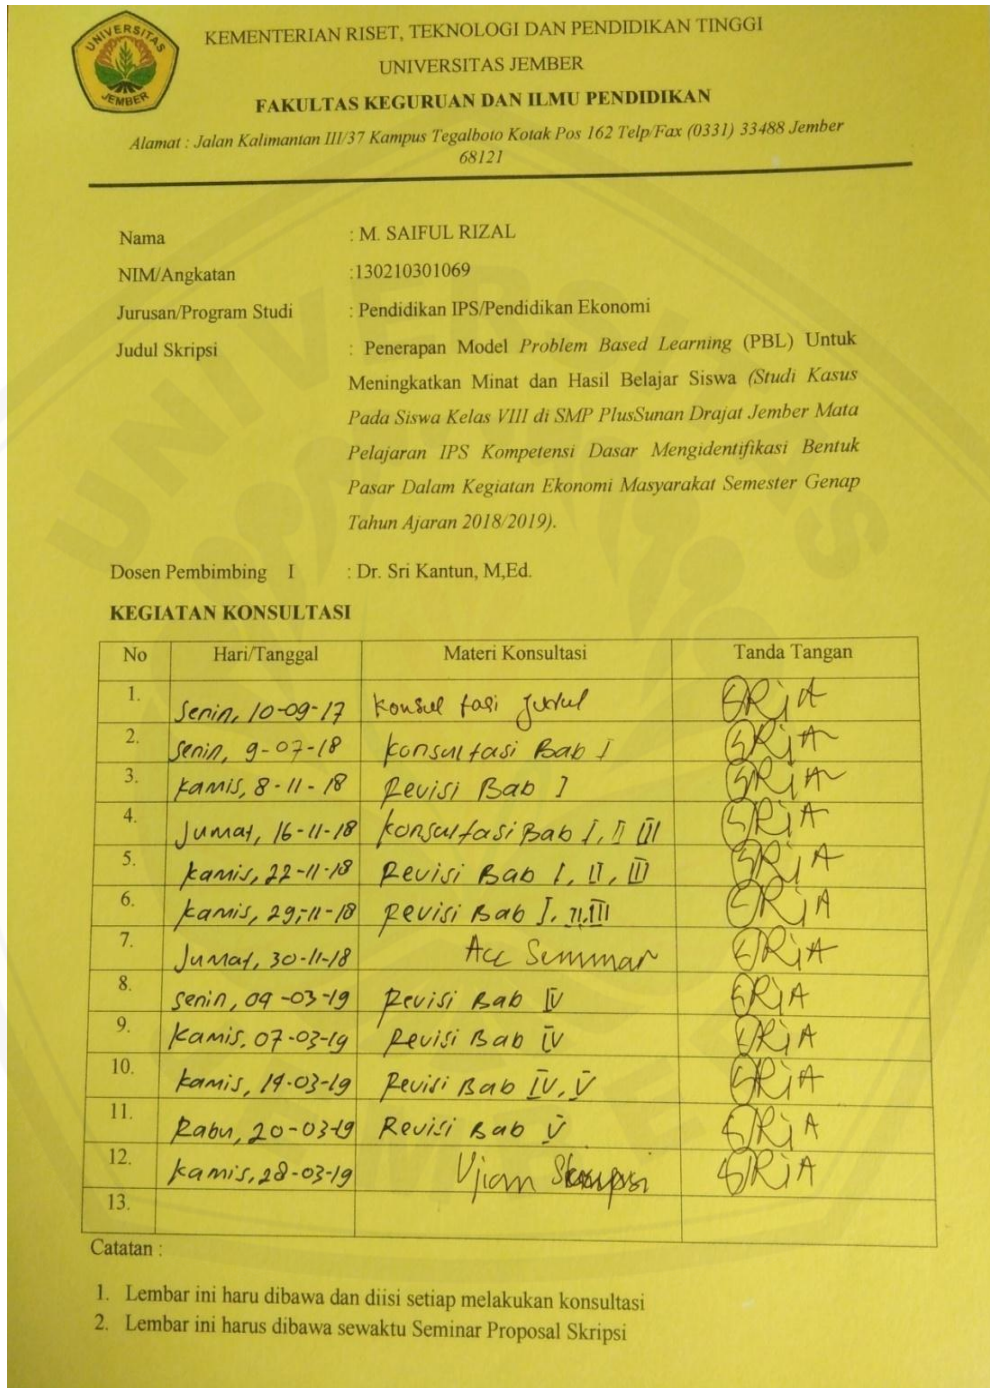 UNIVERSITAS
JEMBER
KEMENTERIAN RISET, TEKNOLOGI DAN PENDIDIKAN TINGGI
UNIVERSITAS JEMBER
FAKULTAS KEGURUAN DAN ILMU PENDIDIKAN
Alamat : Jalan Kalimantan III/37 Kampus Tegalboto Kotak Pos 162 Telp/Fax (0331) 33488 Jember
68121
Nama : M. SAIFUL RIZAL
NIM/Angkatan :130210301069
Jurusan/Program Studi : Pendidikan IPS/Pendidikan Ekonomi
Judul Skripsi : Penerapan Model Problem Based Learning (PBL) Untuk
Meningkatkan Minat dan Hasil Belajar Siswa (Studi Kasus
Pada Siswa Kelas VIII di SMP PlusSunan Drajat Jember Mata
Pelajaran IPS Kompetensi Dasar Mengidentifikasi Bentuk
Pasar Dalam Kegiatan Ekonomi Masyarakat Semester Genap
Tahun Ajaran 2018/2019).
Dosen Pembimbing I : Dr. Sri Kantun, M,Ed.
KEGIATAN KONSULTASI
No Hari/Tanggal Materi Konsultasi Tanda Tangan
1. Senin, 10-09-17 Konsultasi Judul
2. Senin, 9-07-18 Konsultasi Bab I
3. Kamis, 8-11-18 Revisi Bab I
4. Jumat, 16-11-18 Konsultasi Bab I, II III
5. Kamis, 22-11-18 Revisi Bab I, II, III
6. Kamis, 29-11-18 Revisi Bab I, II, III
7. Jumat, 30-11-18 Acc Seminar
8. Senin, 04-03-19 Revisi Bab IV
9. Kamis, 07-03-19 Revisi Bab IV
10. Kamis, 14-03-19 Revisi Bab IV, V
11. Rabu, 20-03-19 Revisi Bab V
12. Kamis, 28-03-19 Ujian Skripsi
13.
Catatan :
1. Lembar ini haru dibawa dan diisi setiap melakukan konsultasi
2. Lembar ini harus dibawa sewaktu Seminar Proposal Skripsi